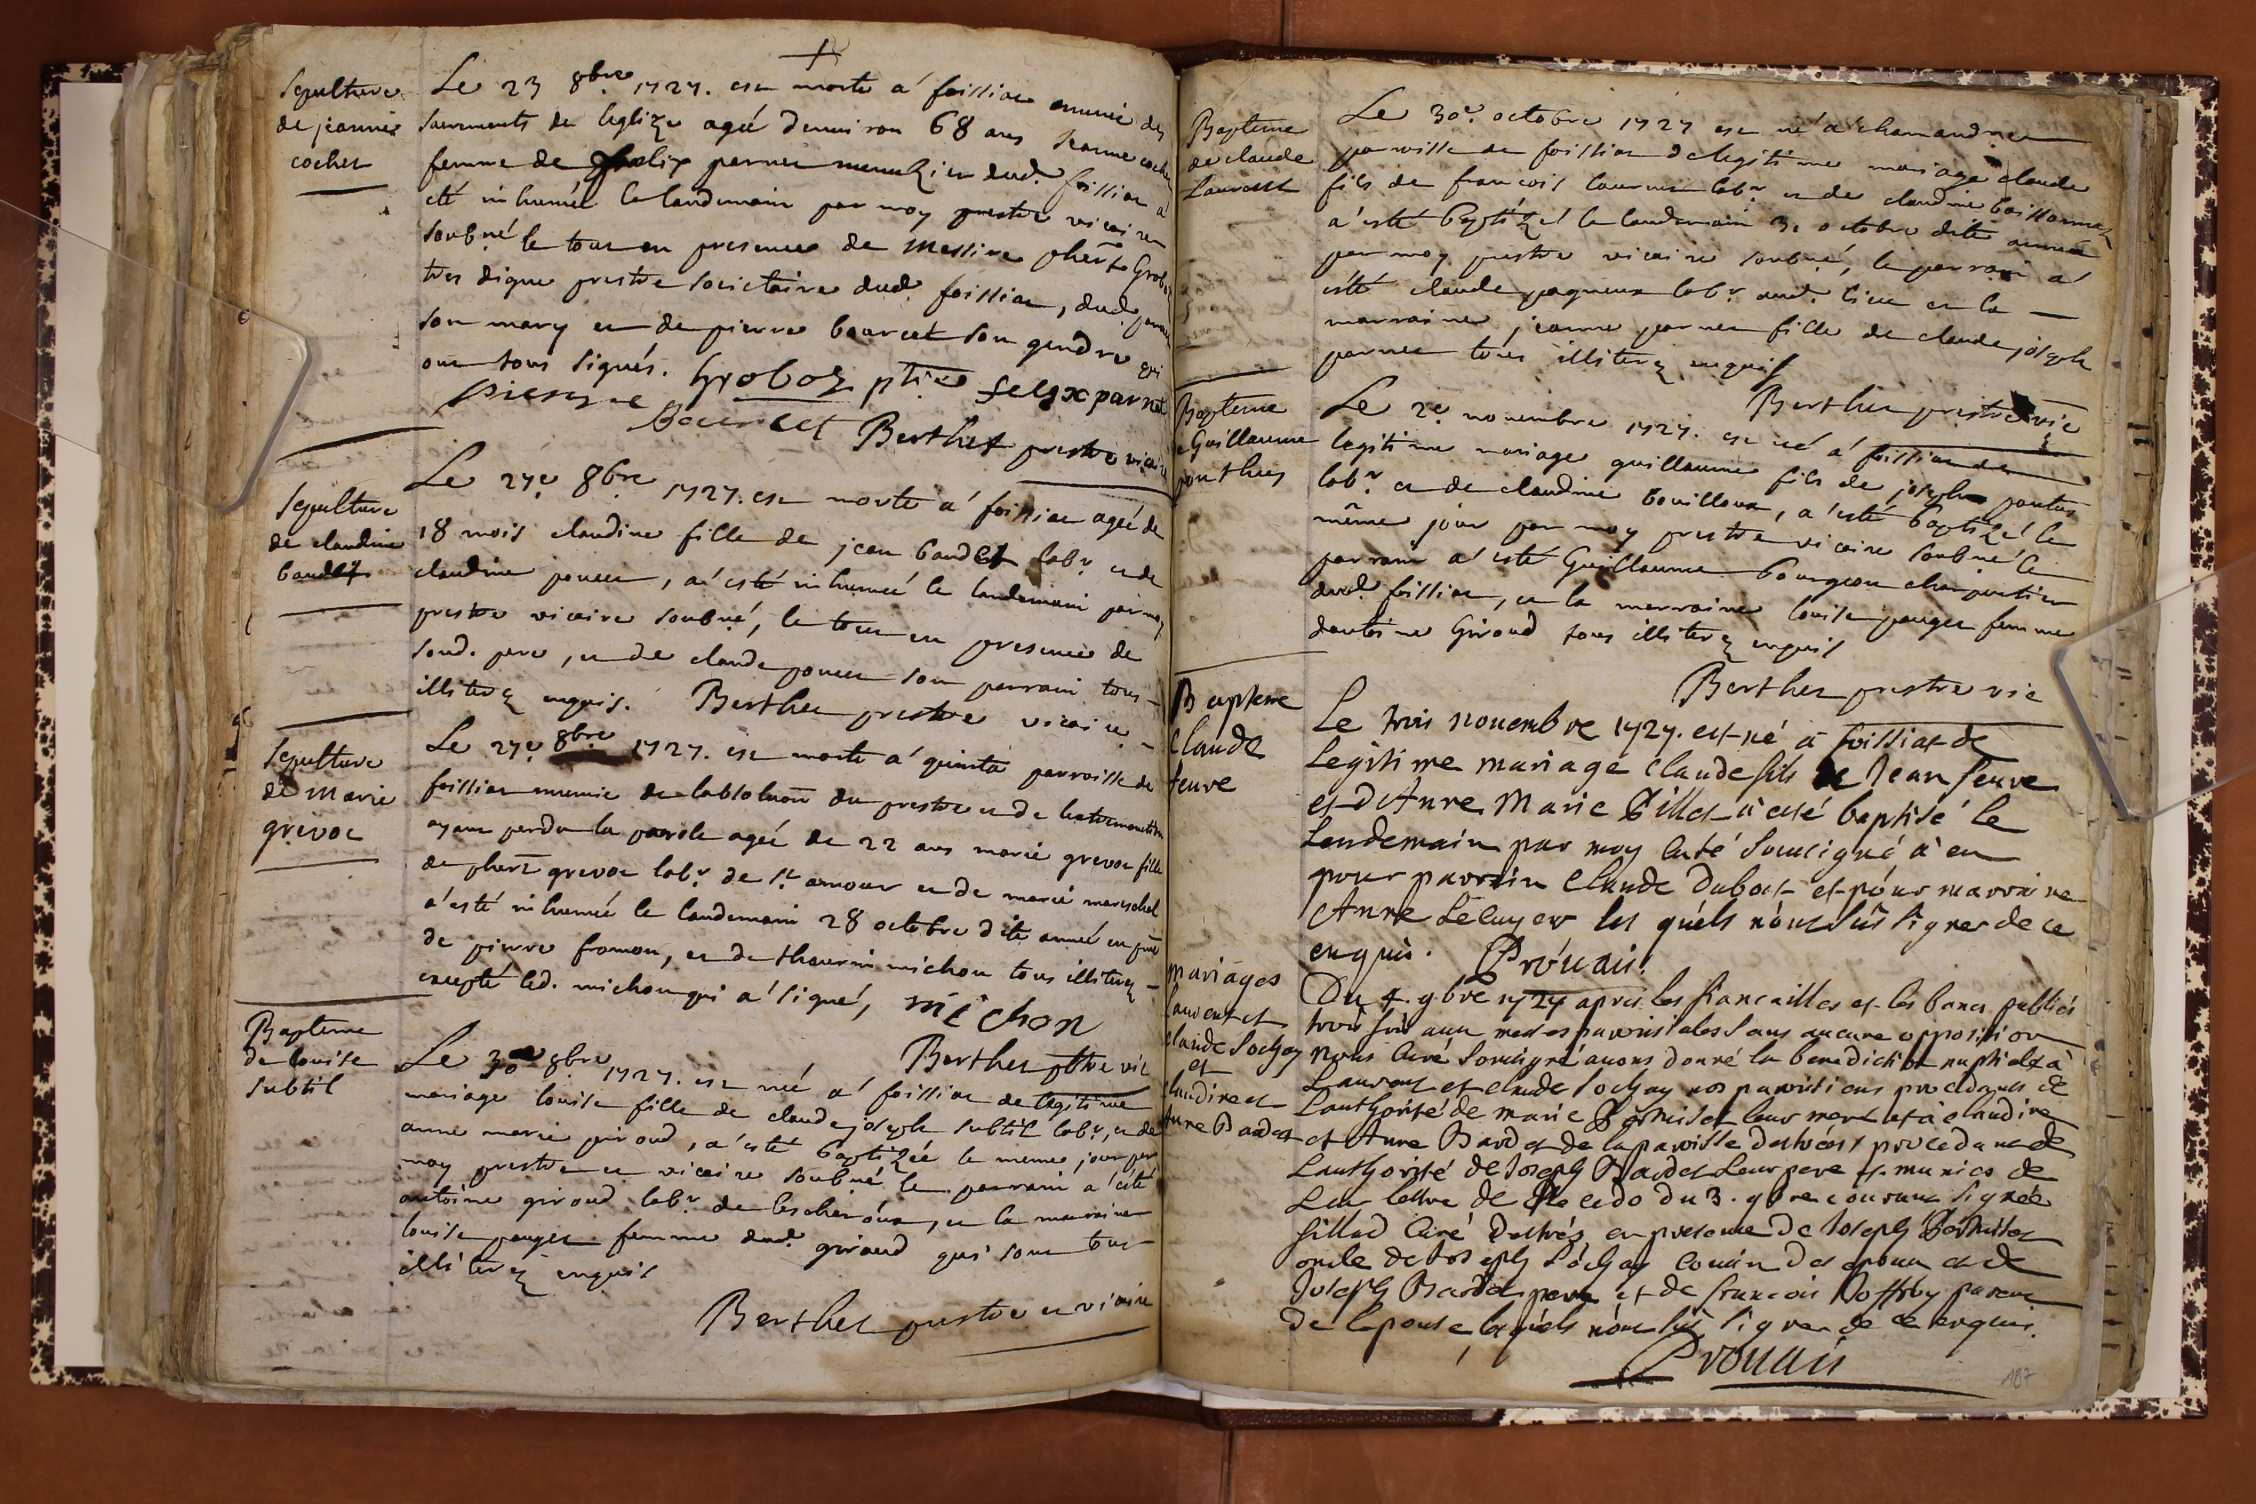 Sepulture
de jeanne
cochet
Le 23 8bre 1727. est morte a' foissiat munie des
sacrements de leglize ageé denviron 68 ans Jeanne cochet
femme de felix parnet menuzier dud. foissiat a
eté inhumeé le landemain par moy prestre vicaire
soubné le tout en presence de Messire Grobos
tres digne prestre societaire dud. foissiat, dud. parnet
son mary et de pierre bourcet son gendre qui
ont tous signés. Groboz ptre felix parnet
pierre Bourcet Berthet prestre vicaire
Sepulture
de claudine
baudet
Le 27e 8bre 1727. est morte a' foissiat ageé de
18 mois claudine fille de jean baudet labr. et de
claudine poncet, a' esté inhumeé le landemain par moy
prestre vicaire soubné, le tout en presence de
soud. pere, et de claude poncet son parrain tous
illiterez enquis. Berthet prestre vicaire
Sepulture
de Marie
grevat
Le 27e 8bre 1727. est morte a' quinta parroisse de
foissiat munie de labsolution du prestre et de lextremonction
ayant perdu la parole ageé de 22 ans marie grevat fille
de grevat labr. de st. amour et de marie mareschal
a' esté inhumeé le landemain 28 octobre dite anneé en pnce
de pierre fromon, et de thaurin michon tous illiterez
excepté led. michon qui a' signé, michon
Berthet ptre vic
Bapteme
de louise
subtil
Le 30 8bre 1727. est neé a' foissiat de legitime
mariage louise fille de claude joseph subtil labr., et de
anne marie piroud, a' esté baptizeé le meme jour par
moy prestre et vicaire soubné le parrain a' esté
antoine giroud labr. de lescheroux, et la marraine
louise pauget femme dud. giroud qui sont tous
illiterez enquis
Berthet prestre et vicaire
Bapteme
de claude
Laurent
Le 30e. octobre 1727 est né a' chamandre
parroisse de foissiat de legitime mariage claude
fils de francois laurent labr. et de claudine
a' esté baptizé le landemain 31 octobre dite anneé
par moy prestre vicaire soubné, le parrain a'
esté claude pagneux labr. dud. lieu et la
marraine jeanne parnet fille de claude joseph
parnet tous illiterez enquis
Berthet prestre vic
Bapteme
de Guillaume
ponthus
Le 2e novembre 1727. est né a' foissiat de
legitime mariage guillaume fils de joseph pontus
labr. et de claudine bouilloux, a' esté baptizé le
même jour par moy prestre vicaire soubné le
parrain a' esté Guillaume bourgeon charpentier
dud. foissiat, et la marraine louise pauget femme
dantoine Giroud tous illiterez enquis
Berthet prestre vic
Bapteme
Claude
feure
Le trois novembre 1727. est né à foissiat de
Legitime mariage Claude fils de Jean feure
et d'Anne Marie Billet à esté baptisé le
Lendemain par moy Curé soussigné à eu
pour parrain Claude Dubost et pour marraine
Anne Lécuyer les quels n'ont sus signer de ce
enquis. Prouais
mariages
laurent et
claude sochay
et
claudine et
Anne Bardet
Du 4. 9bre 1727 apres les fiancailles et les bancs publiés
trois fois aux messes paroissiales sans aucune opposition
Nous Curé Soussigné avons donné la benediction nuptiale à
Laurent et claude Sochay nos paroissiens procedants de
Lauthorité de marie leur mere et à claudine
et Anne Bardet de la paroisse procedant de
Lauthorité de Joseph Bardet Leur pere et munies de
Leur lettre de recedo du 3. 9bre courant signée
Gillod Curé en presence de Joseph
oncle de Joseph Sochay cousin des epoux et de
Joseph Bardet pere et de francois parent
de lepouse, lesquels n'ont sus signer de ce enquis.
Prouais
187